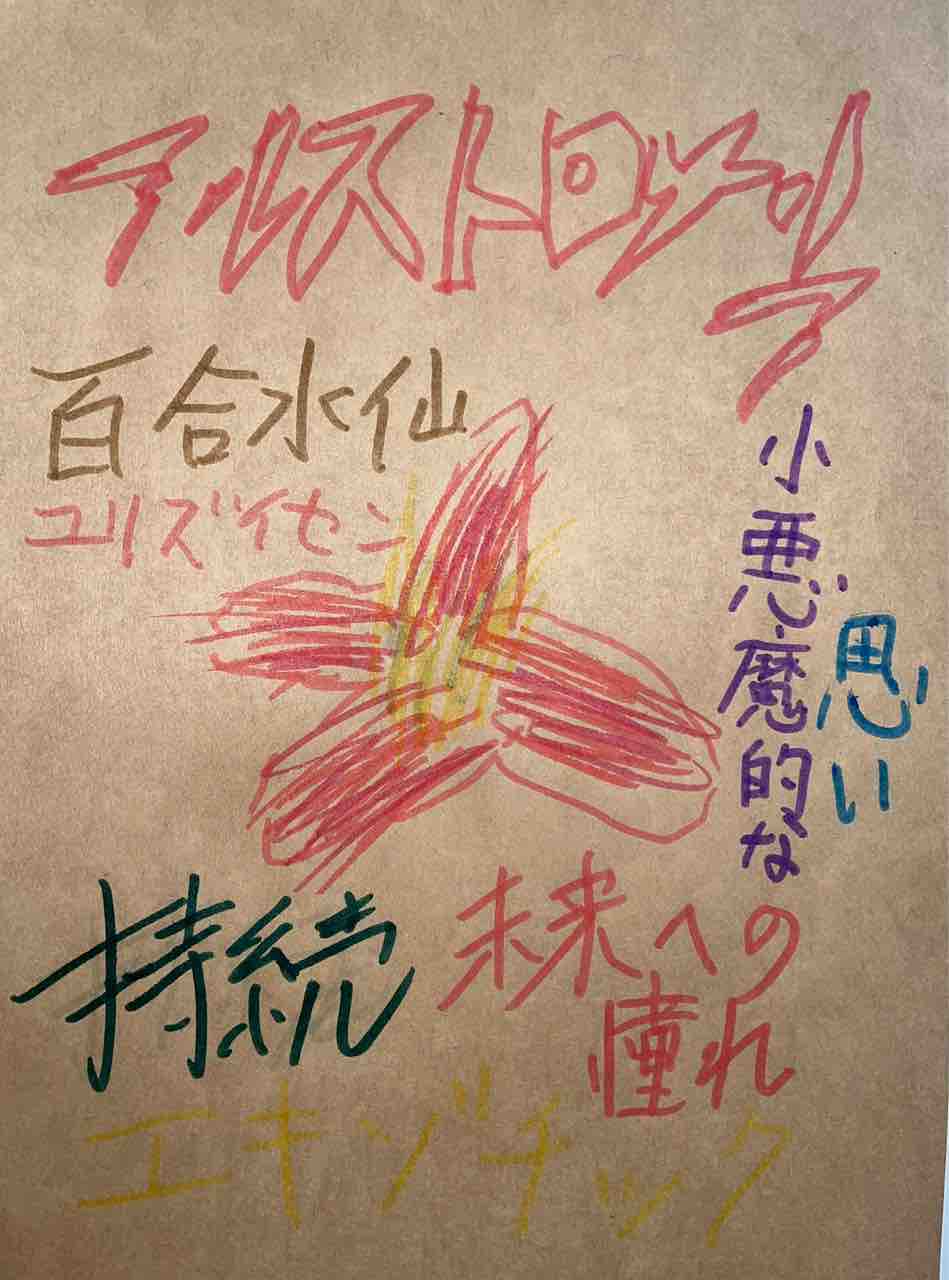 アルストロメリ
ア
百合水仙
ユリズイセン
小悪魔的な
思い
持続
未来への
憧れ
エキゾチック